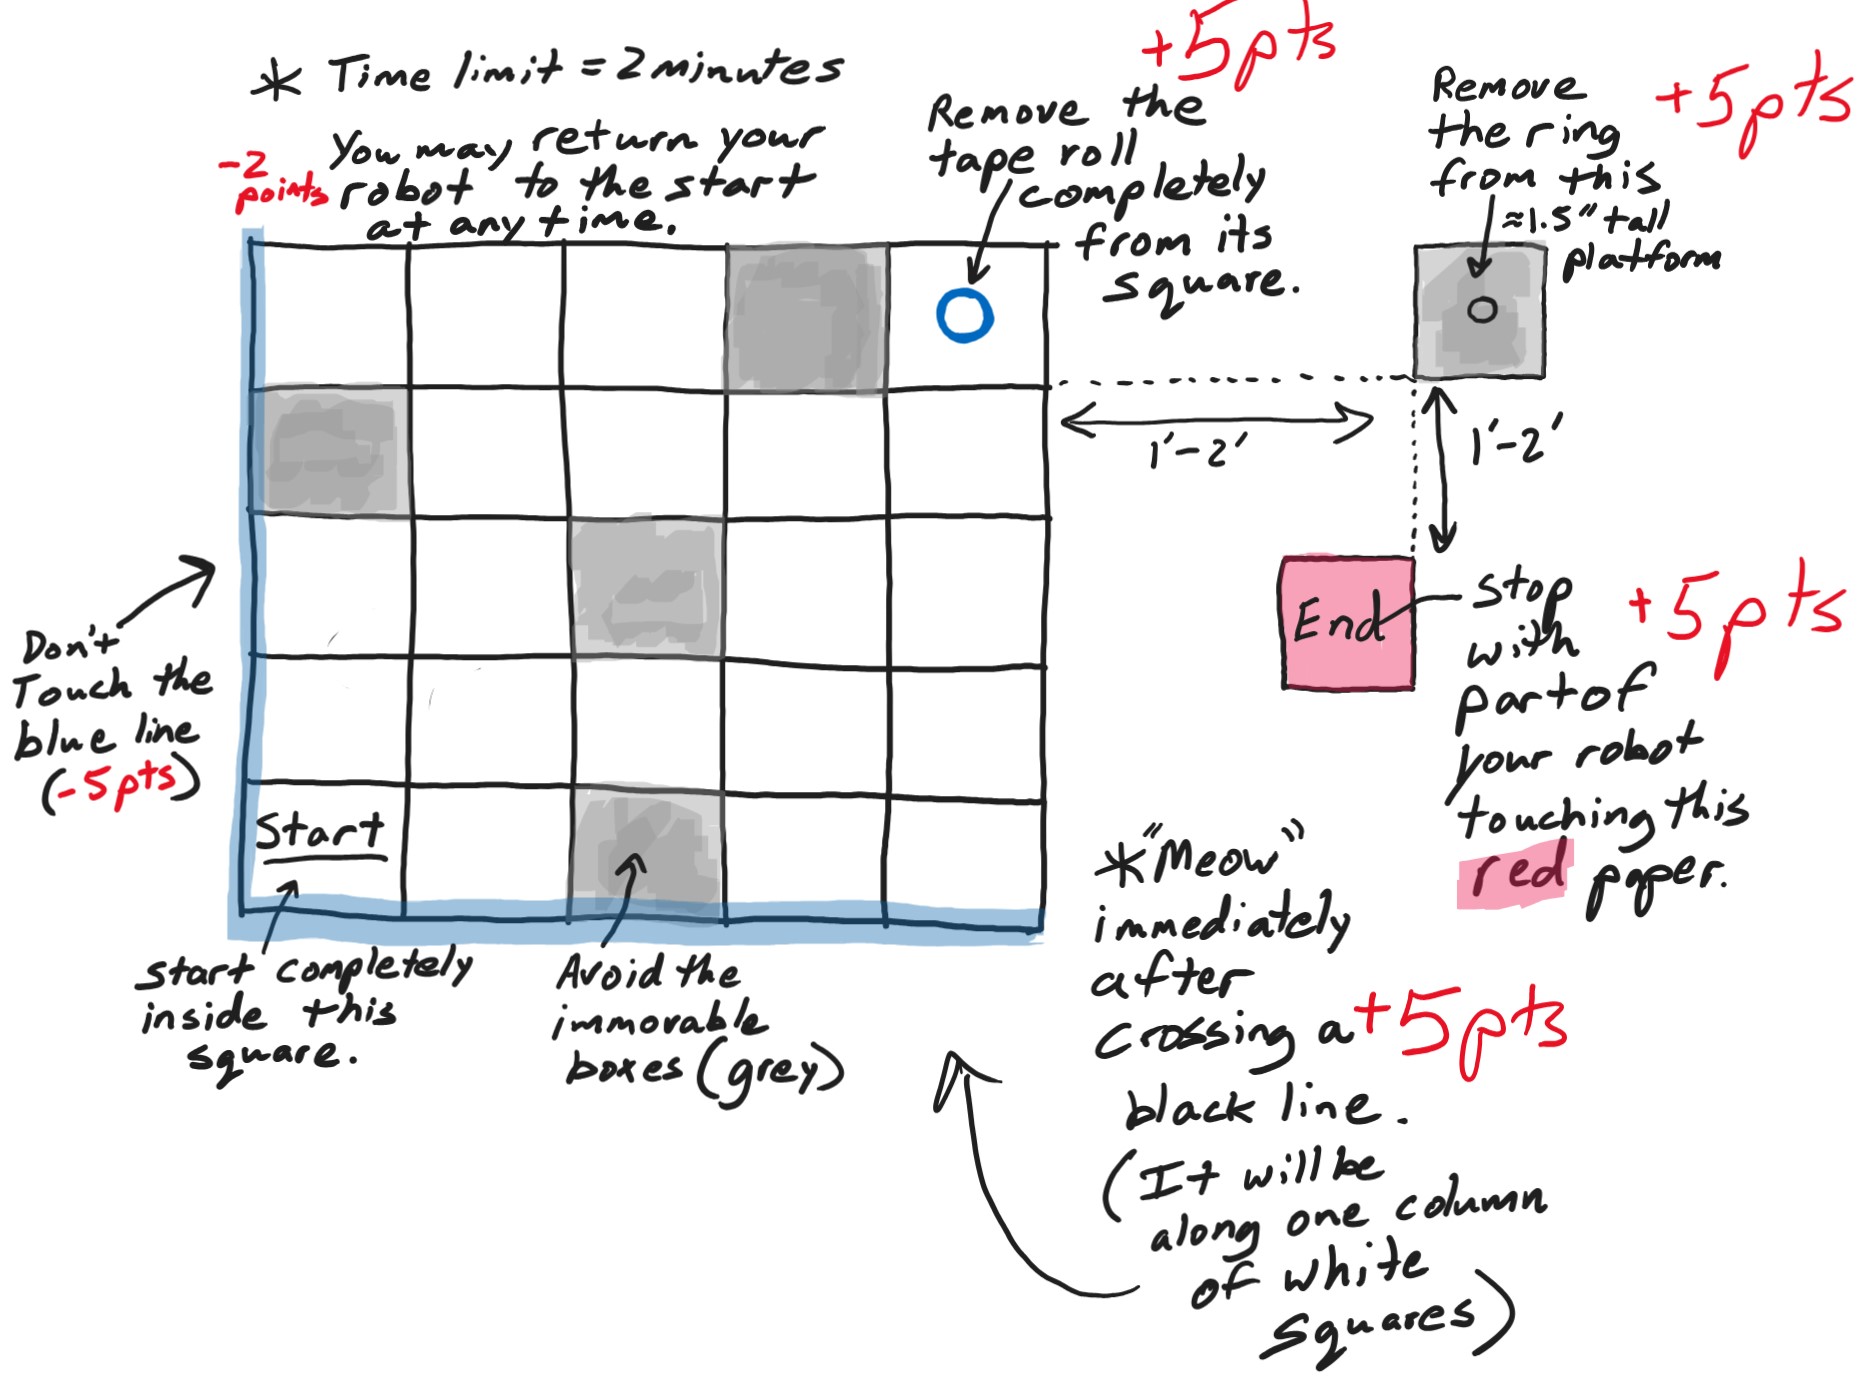 * Time limit = 2 minutes
-2
points
You may return your
robot to the start
at any time.
+5pts
Remove the
tape roll
completely
from its
square.
+5pts
Remove
the ring
from this
≈1.5" tall
platform
1'-2'
1'-2'
Don't
Touch the
blue line
(-5pts)
Start
End
Stop
with
part of
your robot
touching this
red paper.
+5pts
start completely
inside this
square.
Avoid the
immovable
boxes (grey)
* "Meow"
immediately
after
crossing a
+5pts
black line.
(It will be
along one column
of white
squares)